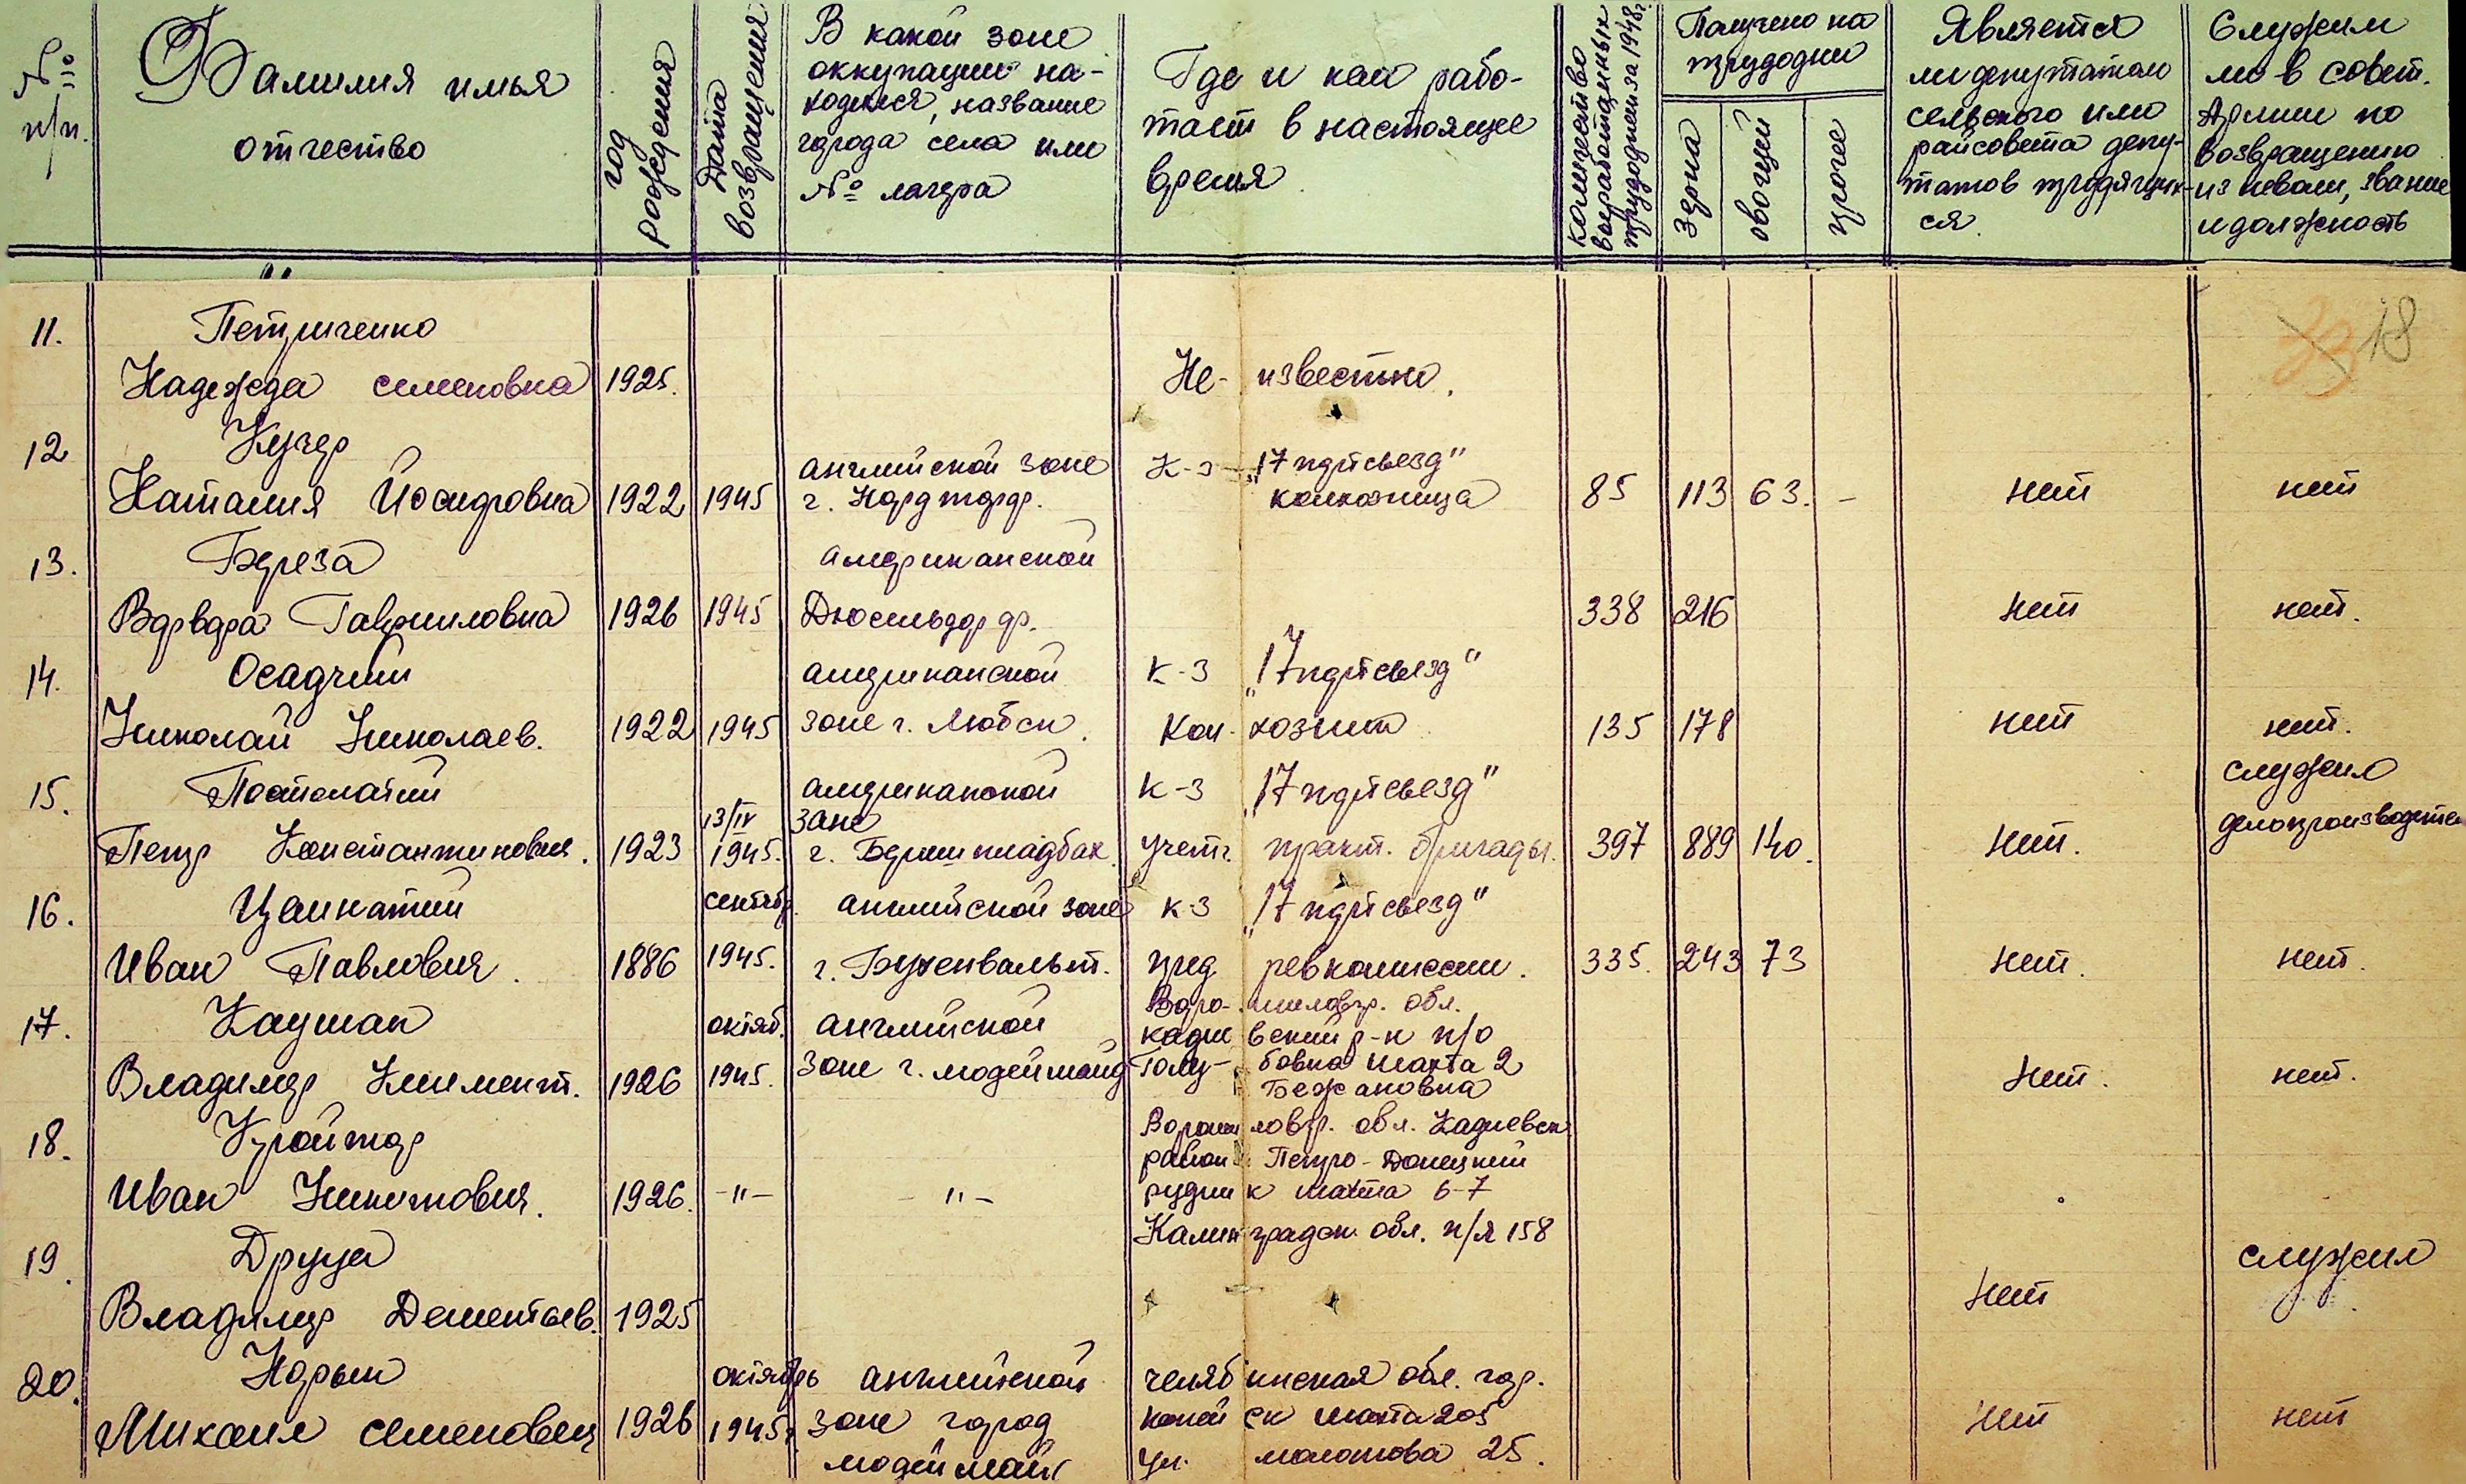 № п/п.
Фамилия имья
отчество
год рождения
Дата возвращения
В какой зоне
оккупации на-
ходился, название
города села или
№ лагера
Где и кем рабо-
тает в настоящее
время
количество выработанных трудодней за 1948 г.
Получено на
трудодни
зерна
овощей
прочее
Является
ли депутатом
сельского или
райсовета депу-
татов трудящих-
ся.
Служил
ли в совет.
Армии по
возвращению
из неволи, звание
и должность
18
11. Петриченко
Надежда семеновна 1925. Не-известно.
12 Кучер
английской зоне К-з „17 партсьезд"
Наталия Йосифовна 1922 1945 колхозница 85 113 63. - нет нет
13. Береза американской
Варвара Гавриловна 1926 1945 Дюсельдорф. 338 216 нет нет.
14. Осадчий американской К-з „17 партсьезд"
Николай Николаев. 1922 1945 зоне г. Любек. Кол-хозник 135 178 нет нет.
15. Постолатий американской К-з „17 партсьезд" служил
13/IV зоне делопроизводител
Петр Константинович. 1923 1945. г. учетч. тракт. бригады. 397 889 140. нет.
16. сентябр. английской зоне К-з „17 партсьезд"
Иван Павлович. 1886 1945. г. Бухенвальт. пред ревкомиссии. 335. 243 73 нет. нет.
Воро-шиловгр. обл.
17. Кауман октяб. английской кадиевский р-н п/о
Владимер Климент. 1926 1945. зоне г. Голу-бовка шахта 2 нет. нет.
Бежановка
18. Кройтор Ворошиловгр. обл. Кадиевск
район Петро-Донецкий
Иван Никитович. 1926. -"- -"- рудник шахта 6-7
Калинградск. обл. п/я 158
19. Друца служил
Владимер Дементьев. 1925 нет
20. октябрь английской челябинская обл. гор.
Михаил семенович 1926 1945. зоне город копейск шахта 205 нет нет
ул. молотова 25.